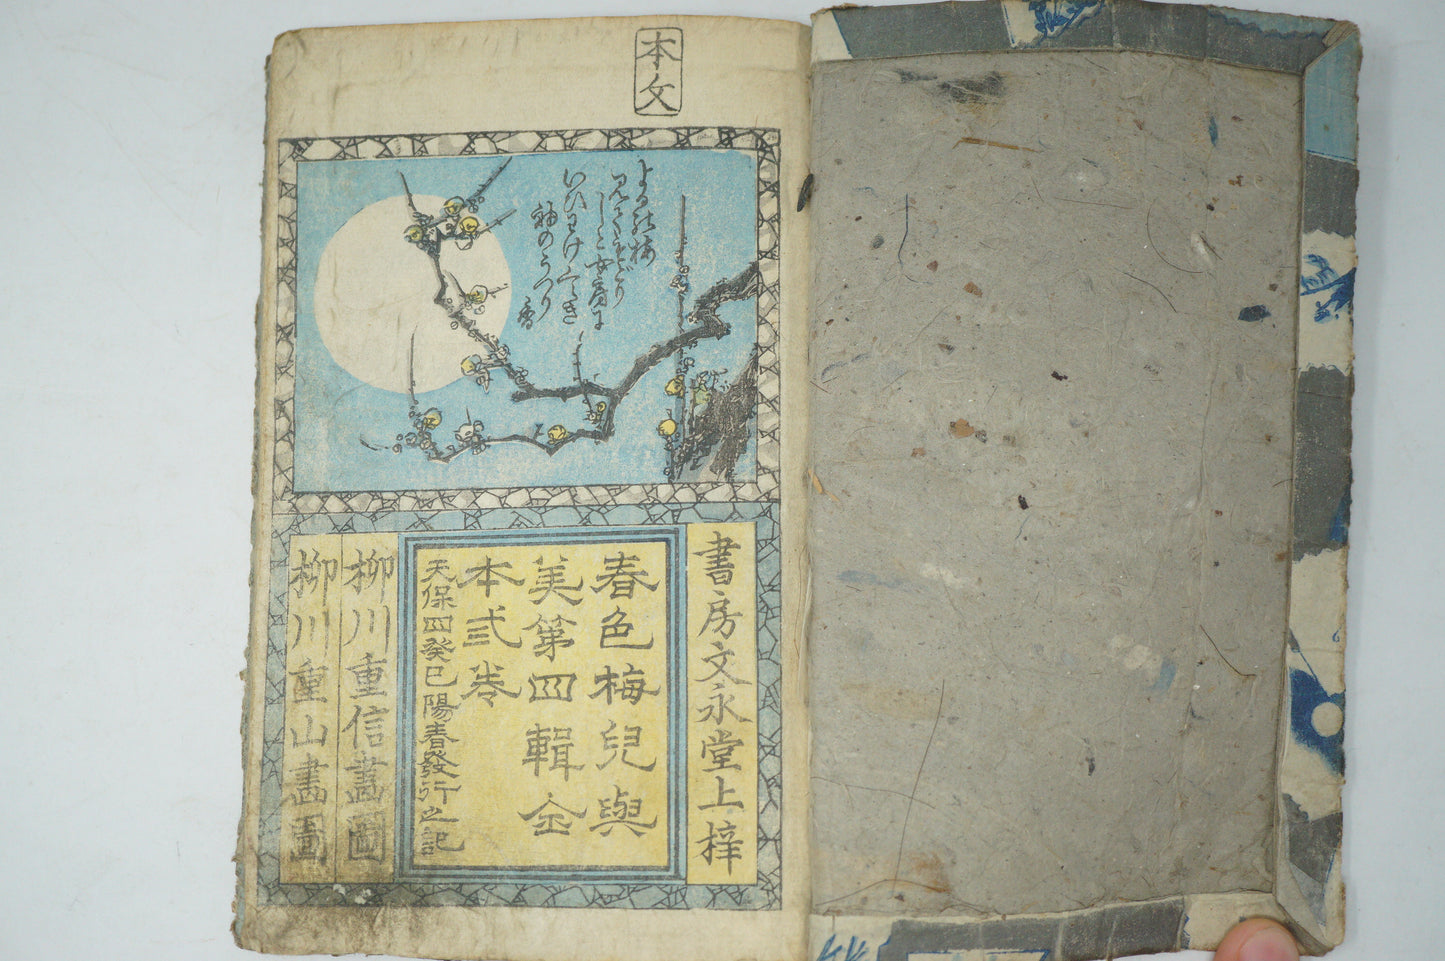 本文
よる の 梅
袖のうつり
香
書房文永堂上梓
春色梅兒與
美第四輯全
本弍巻
天保四癸巳陽春發行之記
柳川重信畫圖
柳川重山畫圖